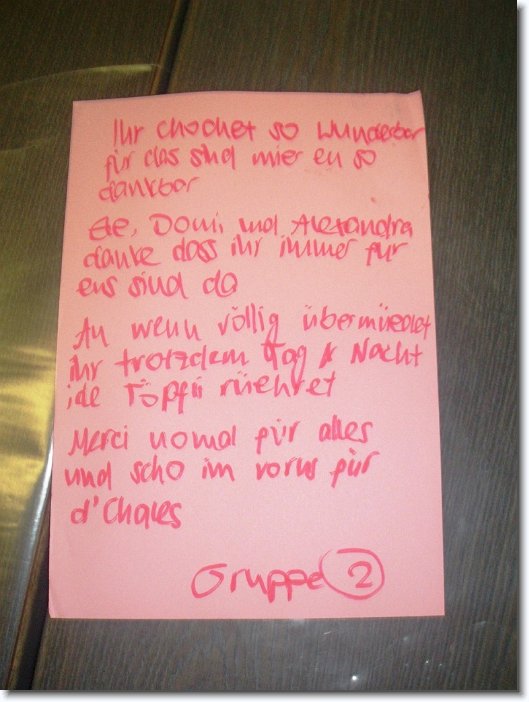 Ihr chochet so wunderbar
für das sind mier eu so
dankbar
Ele, Domi und Alexandra
danke dass ihr immer für
eus sind da
Au wenn völlig übermüedet
ihr trotzdem Tag & Nacht
ide Töpfii rüehret
Merci nomal für alles
und scho im vorus für
d'Chaces
Gruppe 2